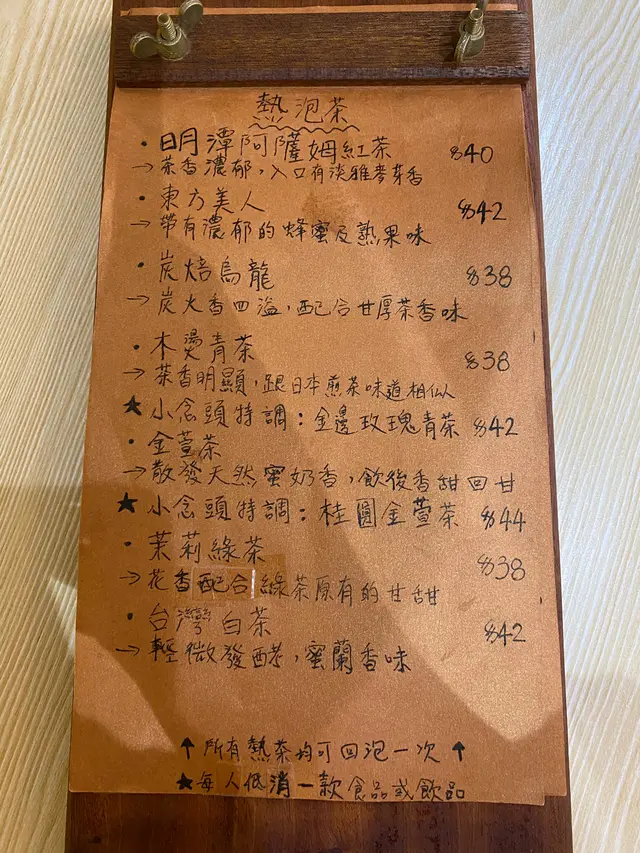 熱泡茶
· 日月潭阿薩姆紅茶 $40
→ 茶香濃郁,入口有淡雅麥芽香
· 東方美人 $42
→ 帶有濃郁的蜂蜜及熟果味
· 炭焙烏龍 $38
→ 炭火香四溢,配合甘厚茶香味
· 木燙青茶 $38
→ 茶香明顯,跟日本煎茶味道相似
★ 小念頭特調:金邊玫瑰青茶 $42
· 金萱茶
→ 散發天然蜜奶香,飲後香甜回甘
★ 小念頭特調:桂圓金萱茶 $44
· 茉莉綠茶 $38
→ 花香配合綠茶原有的甘甜
· 台灣白茶 $42
→ 輕微發酵,蜜蘭香味
↑ 所有熱茶均可回泡一次 ↑
★ 每人低消一款食品或飲品